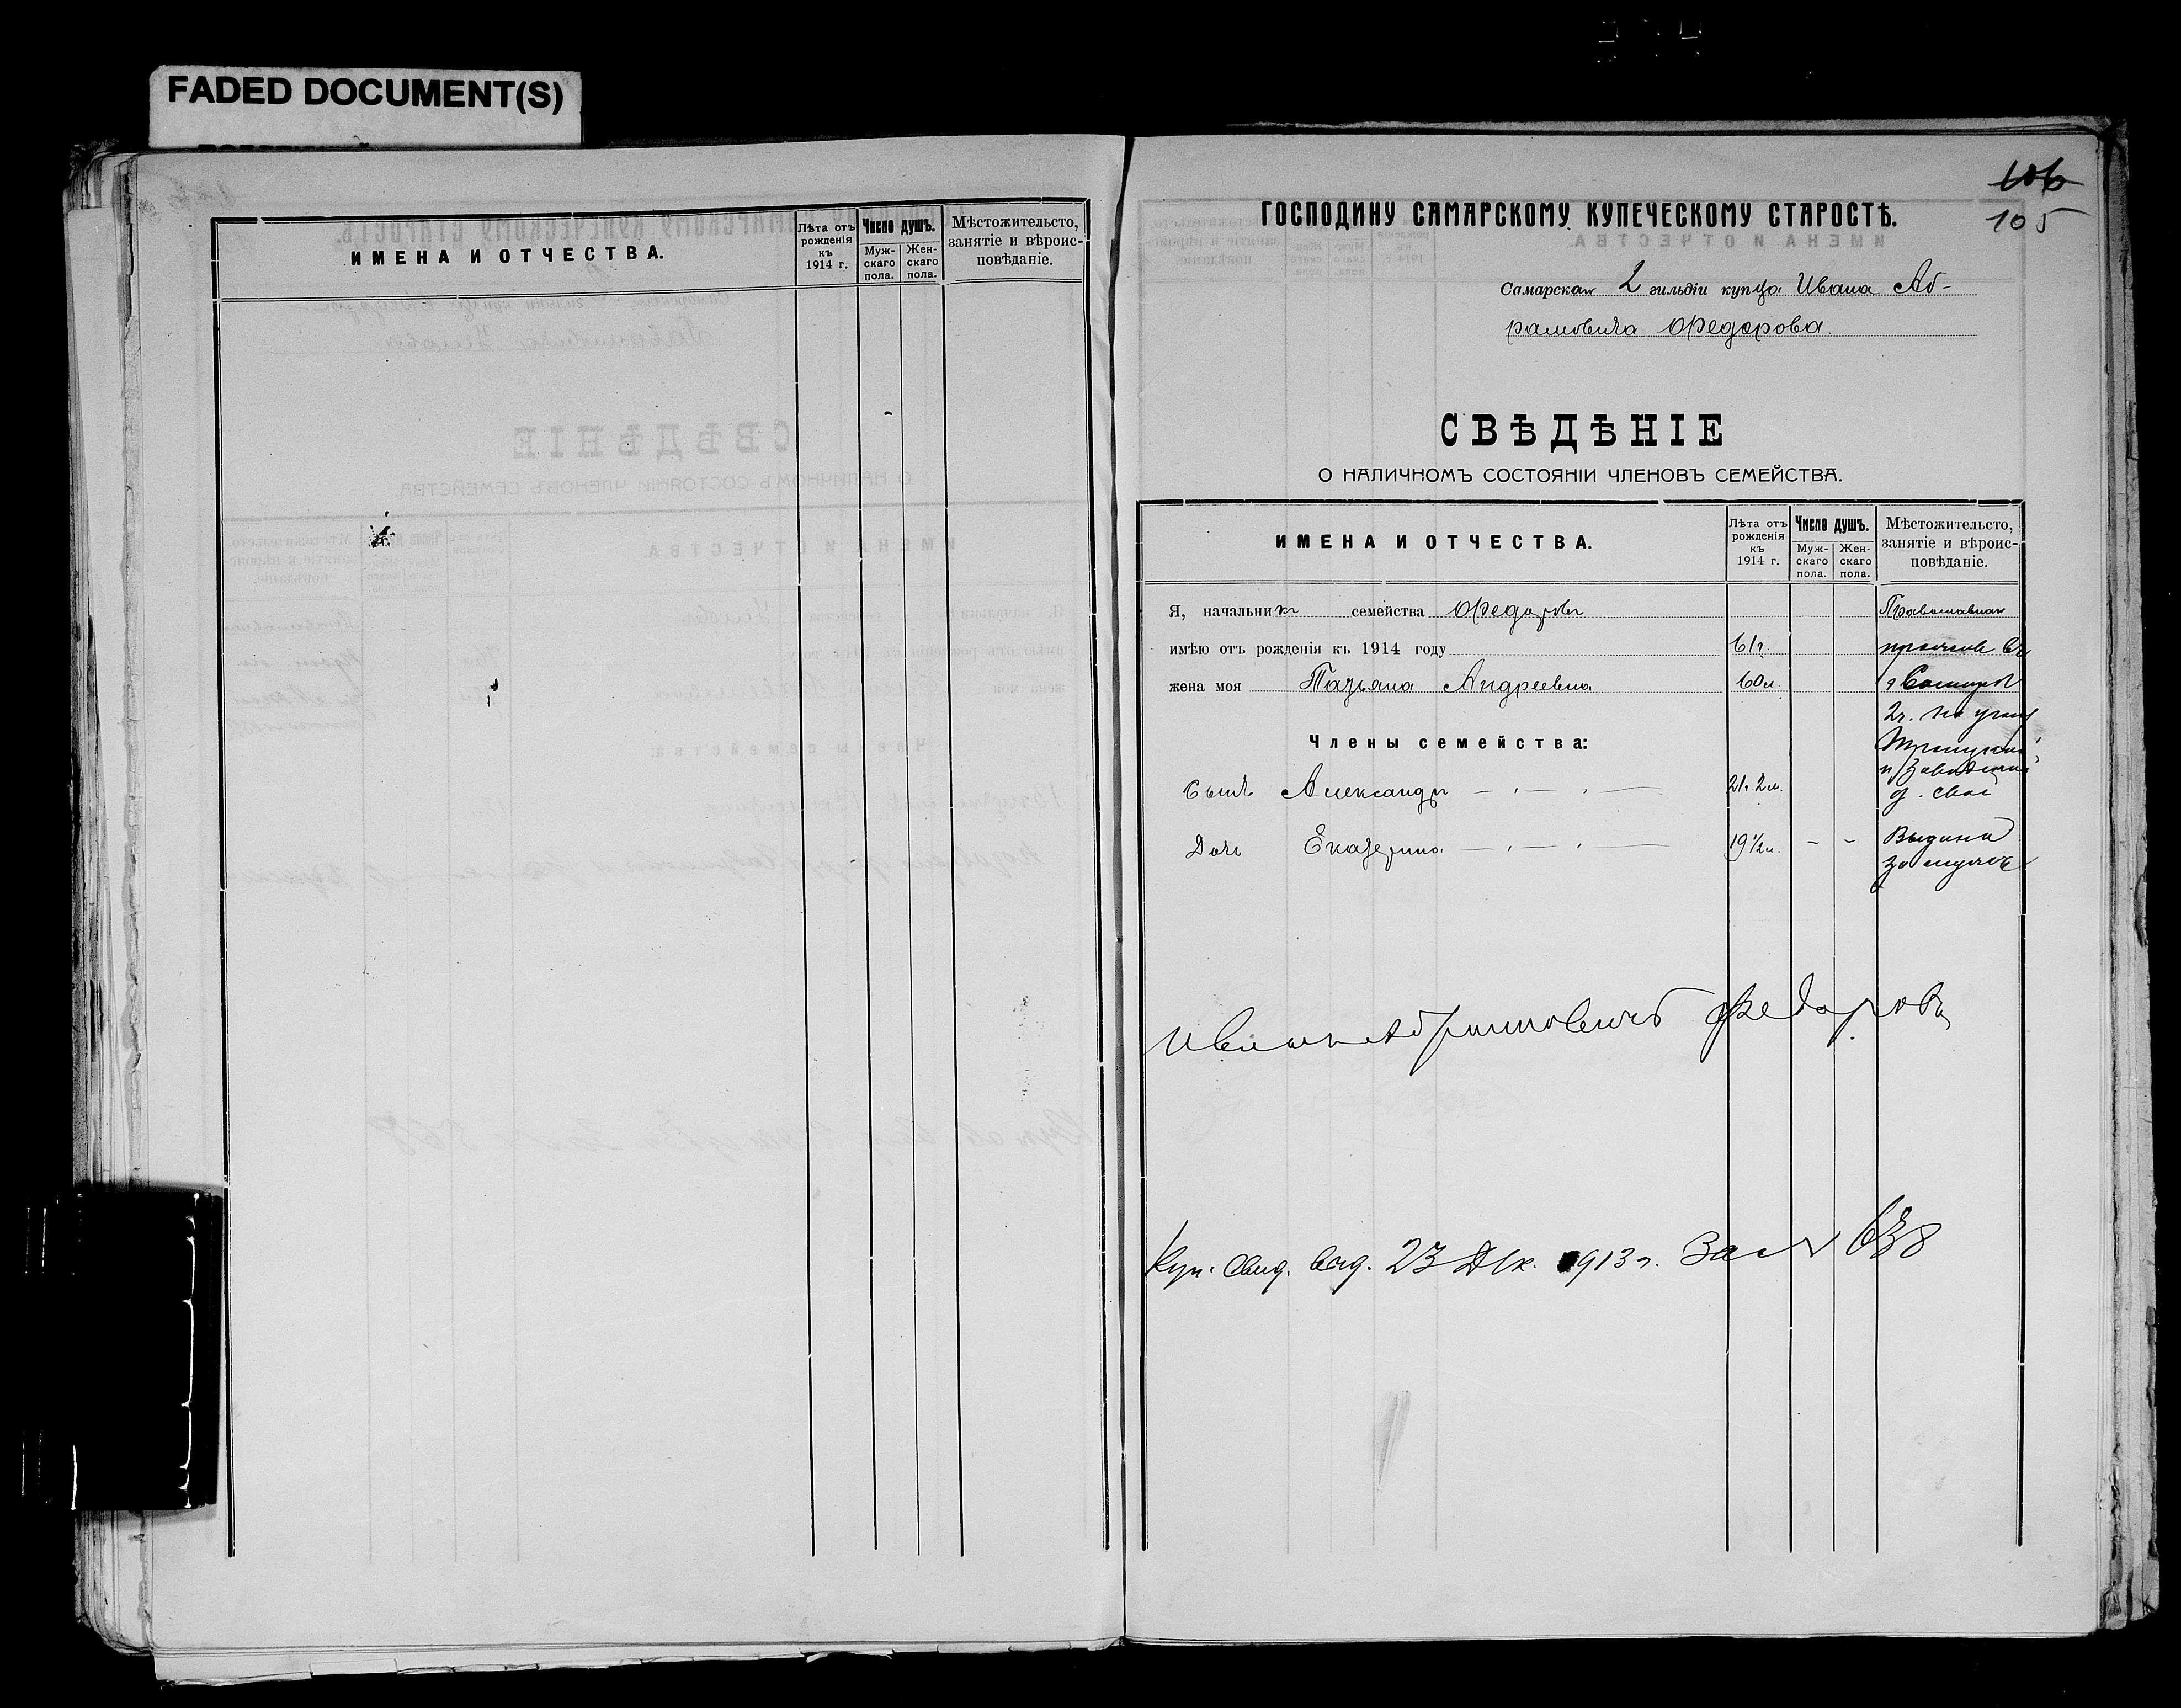 FADED DOCUMENT(S)
ИМЕНА И ОТЧЕСТВА.
Лѣта отъ рожденія къ 1914 г.
Число душъ.
Муж-скаго пола.
Жен-скаго пола.
Мѣстожительсто, занятіе и вѣроис-повѣданіе.
106
105
ГОСПОДИНУ САМАРСКОМУ КУПЕЧЕСКОМУ СТАРОСТѢ.
Самарскаго 2 гильдіи купца Ивана Аб-
рамовича Федорова.
СВѢДѢНІЕ
О НАЛИЧНОМЪ СОСТОЯНІИ ЧЛЕНОВЪ СЕМЕЙСТВА.
ИМЕНА И ОТЧЕСТВА.
Лѣта отъ рожденія къ 1914 г.
Число душъ.
Муж-скаго пола.
Жен-скаго пола.
Мѣстожительсто, занятіе и вѣроис-повѣданіе.
Я, начальникъ семейства Федоровъ
имѣю отъ рожденія къ 1914 году 61 г.
жена моя Татьяна Андреевна 60 л.
Члены семейства:
Сынъ Александръ — „ — „ — 21 г. 2 м.
Дочь Екатерина — „ — „ — 19 1/2 л. - -
Православная
г Самаре
2 ч. на углу
Троицкой
и Заводской
д. свой
Выдана
замужъ
Иванъ Абрамовичъ Федоровъ
Куп. свид. выд. 23 Дек. 1913 г. за № 638